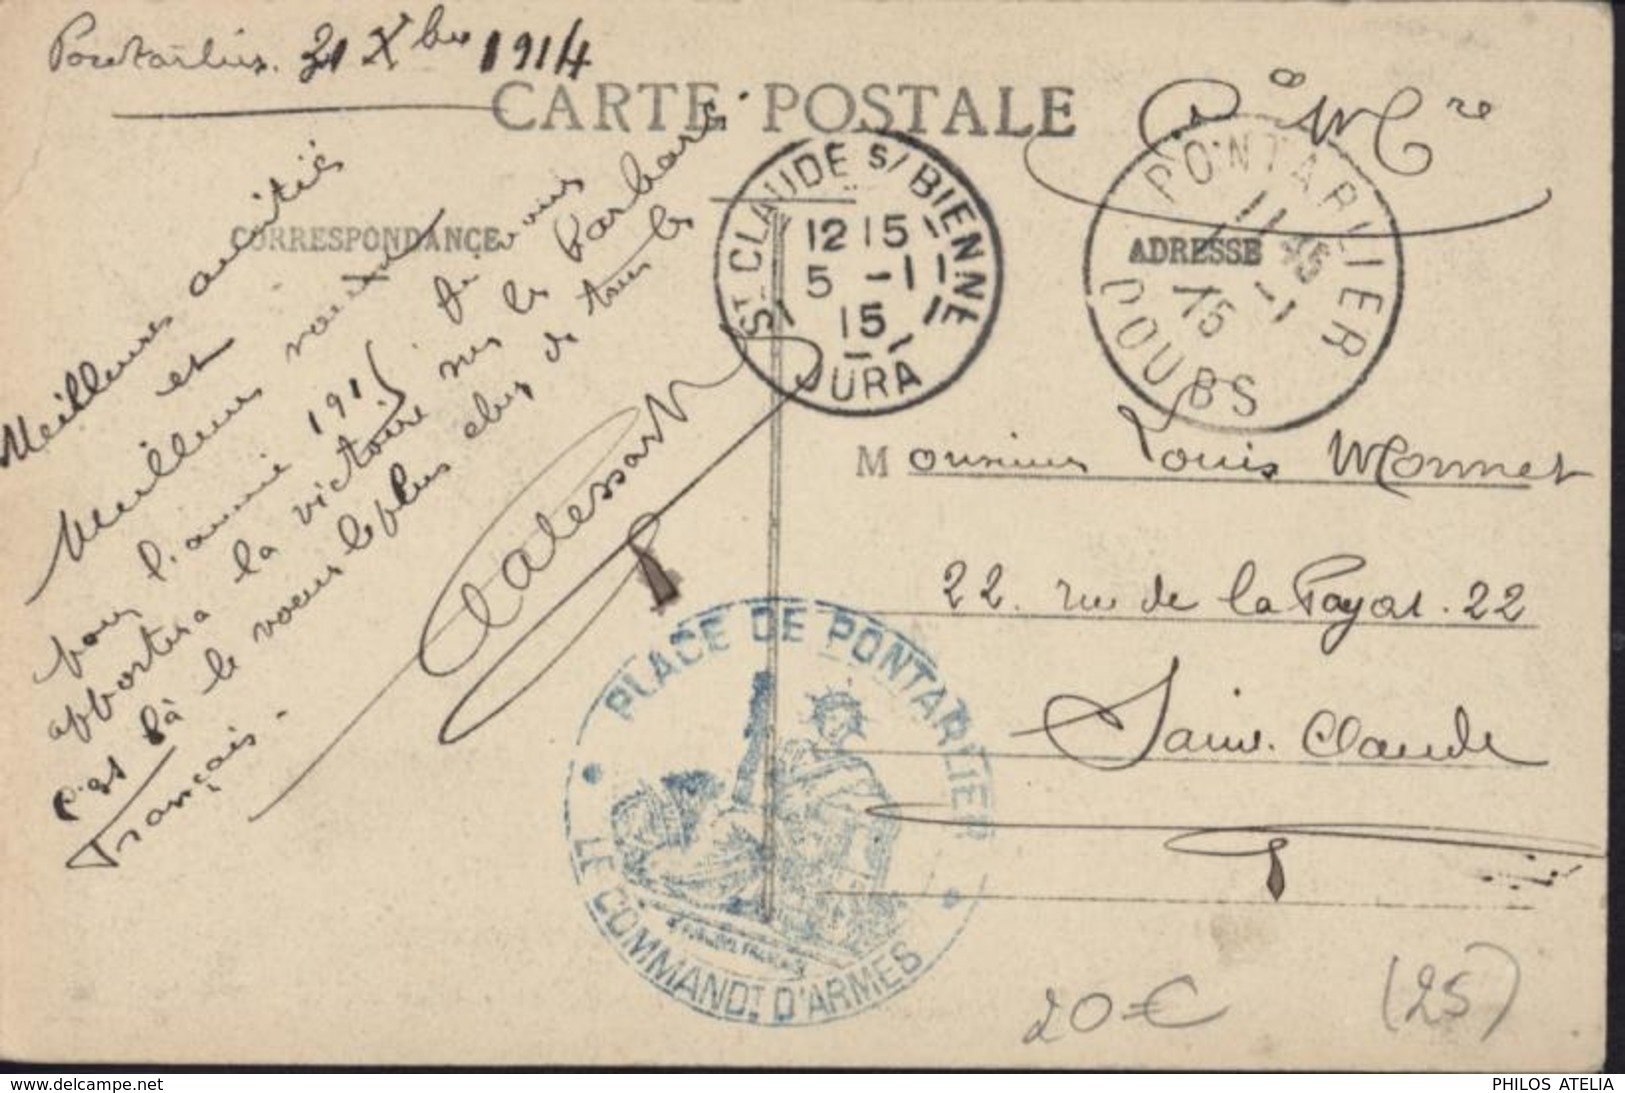 Pontarlier. 31 Xbre 1914
CARTE POSTALE
CORRESPONDANCE
ADRESSE
Meilleures amitiés
et
Meilleurs voeux
pour l'année 1915 qui nous
apportera la victoire sur les barbares
c'est là le voeux le plus cher de tous les
Français.
ST CLAUDE S/ BIENNE
12 15
5 - 1
15
JURA
PONTARLIER
11 35
5 - 1
15
DOUBS
Monsieur Louis Monnet
22. rue de la Poyat. 22
Saint. Claude
PLACE DE PONTARLIER
LE COMMANDT D'ARMES
20€
(25)
PHILOS ATELIA
www.delcampe.net